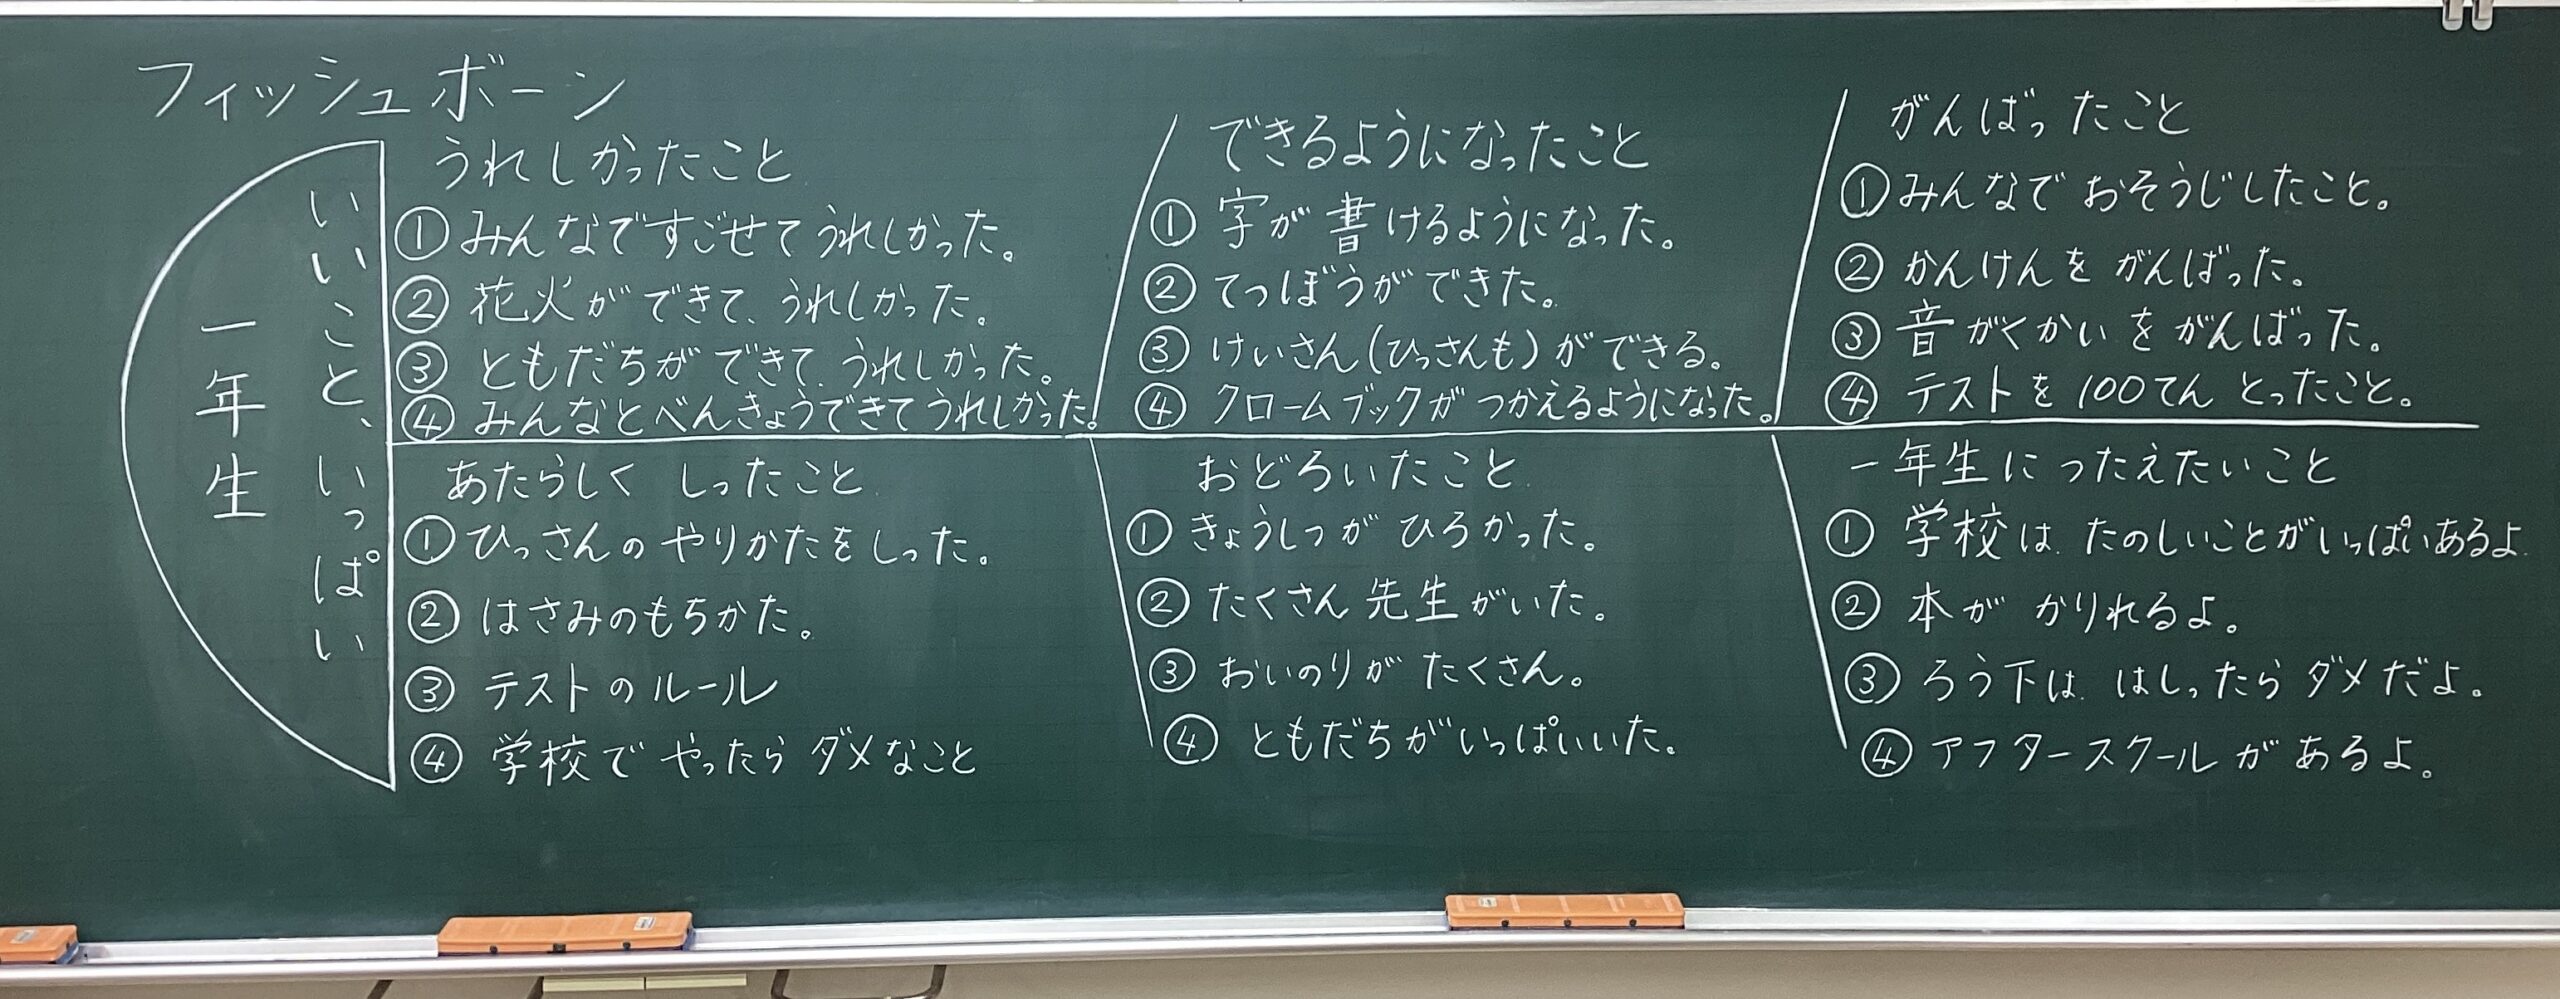 フィッシュボーン
いいこと、いっぱい
一年生
うれしかったこと
①みんなですごせてうれしかった。
②花火ができて、うれしかった。
③ともだちができて、うれしかった。
④みんなとべんきょうできてうれしかった。
できるようになったこと
①字が書けるようになった。
②てつぼうができた。
③けいさん(ひっさんも)ができる。
④クロームブックがつかえるようになった。
がんばったこと
①みんなでおそうじしたこと。
②かんけんをがんばった。
③音がくかいをがんばった。
④テストを100てんとったこと。
あたらしくしったこと
①ひっさんのやりかたをしった。
②はさみのもちかた。
③テストのルール
④学校でやったらダメなこと
おどろいたこと
①きょうしつがひろかった。
②たくさん先生がいた。
③おいのりがたくさん。
④ともだちがいっぱいいた。
一年生につたえたいこと
①学校は、たのしいことがいっぱいあるよ。
②本がかりれるよ。
③ろう下は、はしったらダメだよ。
④アフタースクールがあるよ。